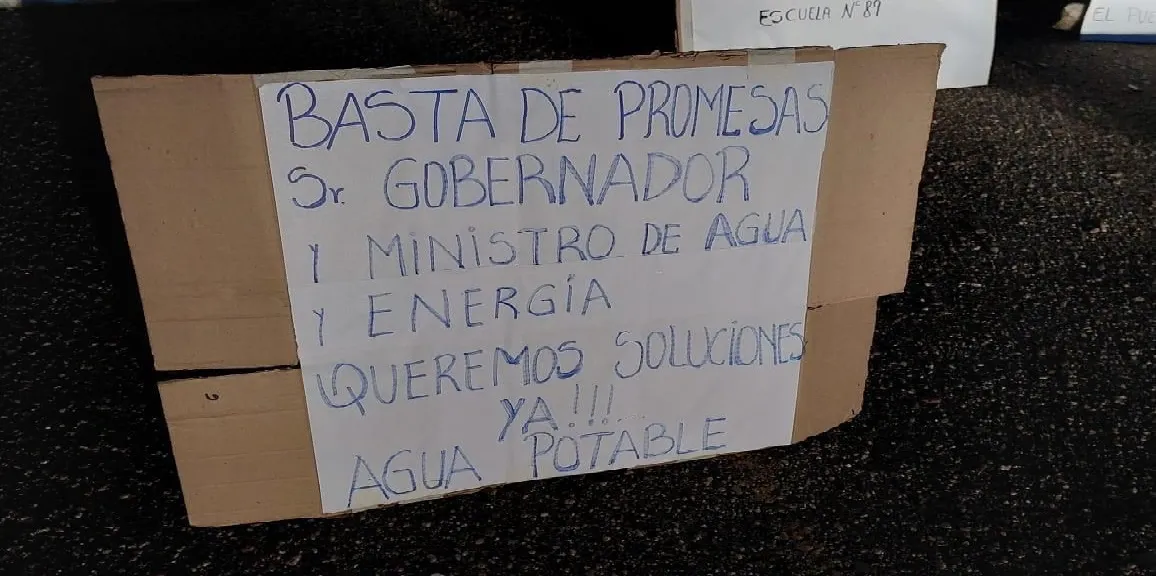 ESCUELA N°89
EL PUE
BASTA DE PROMESAS
Sr. GOBERNADOR
Y MINISTRO DE AGUA
Y ENERGÍA
QUEREMOS SOLUCIONES
YA!!!
AGUA POTABLE